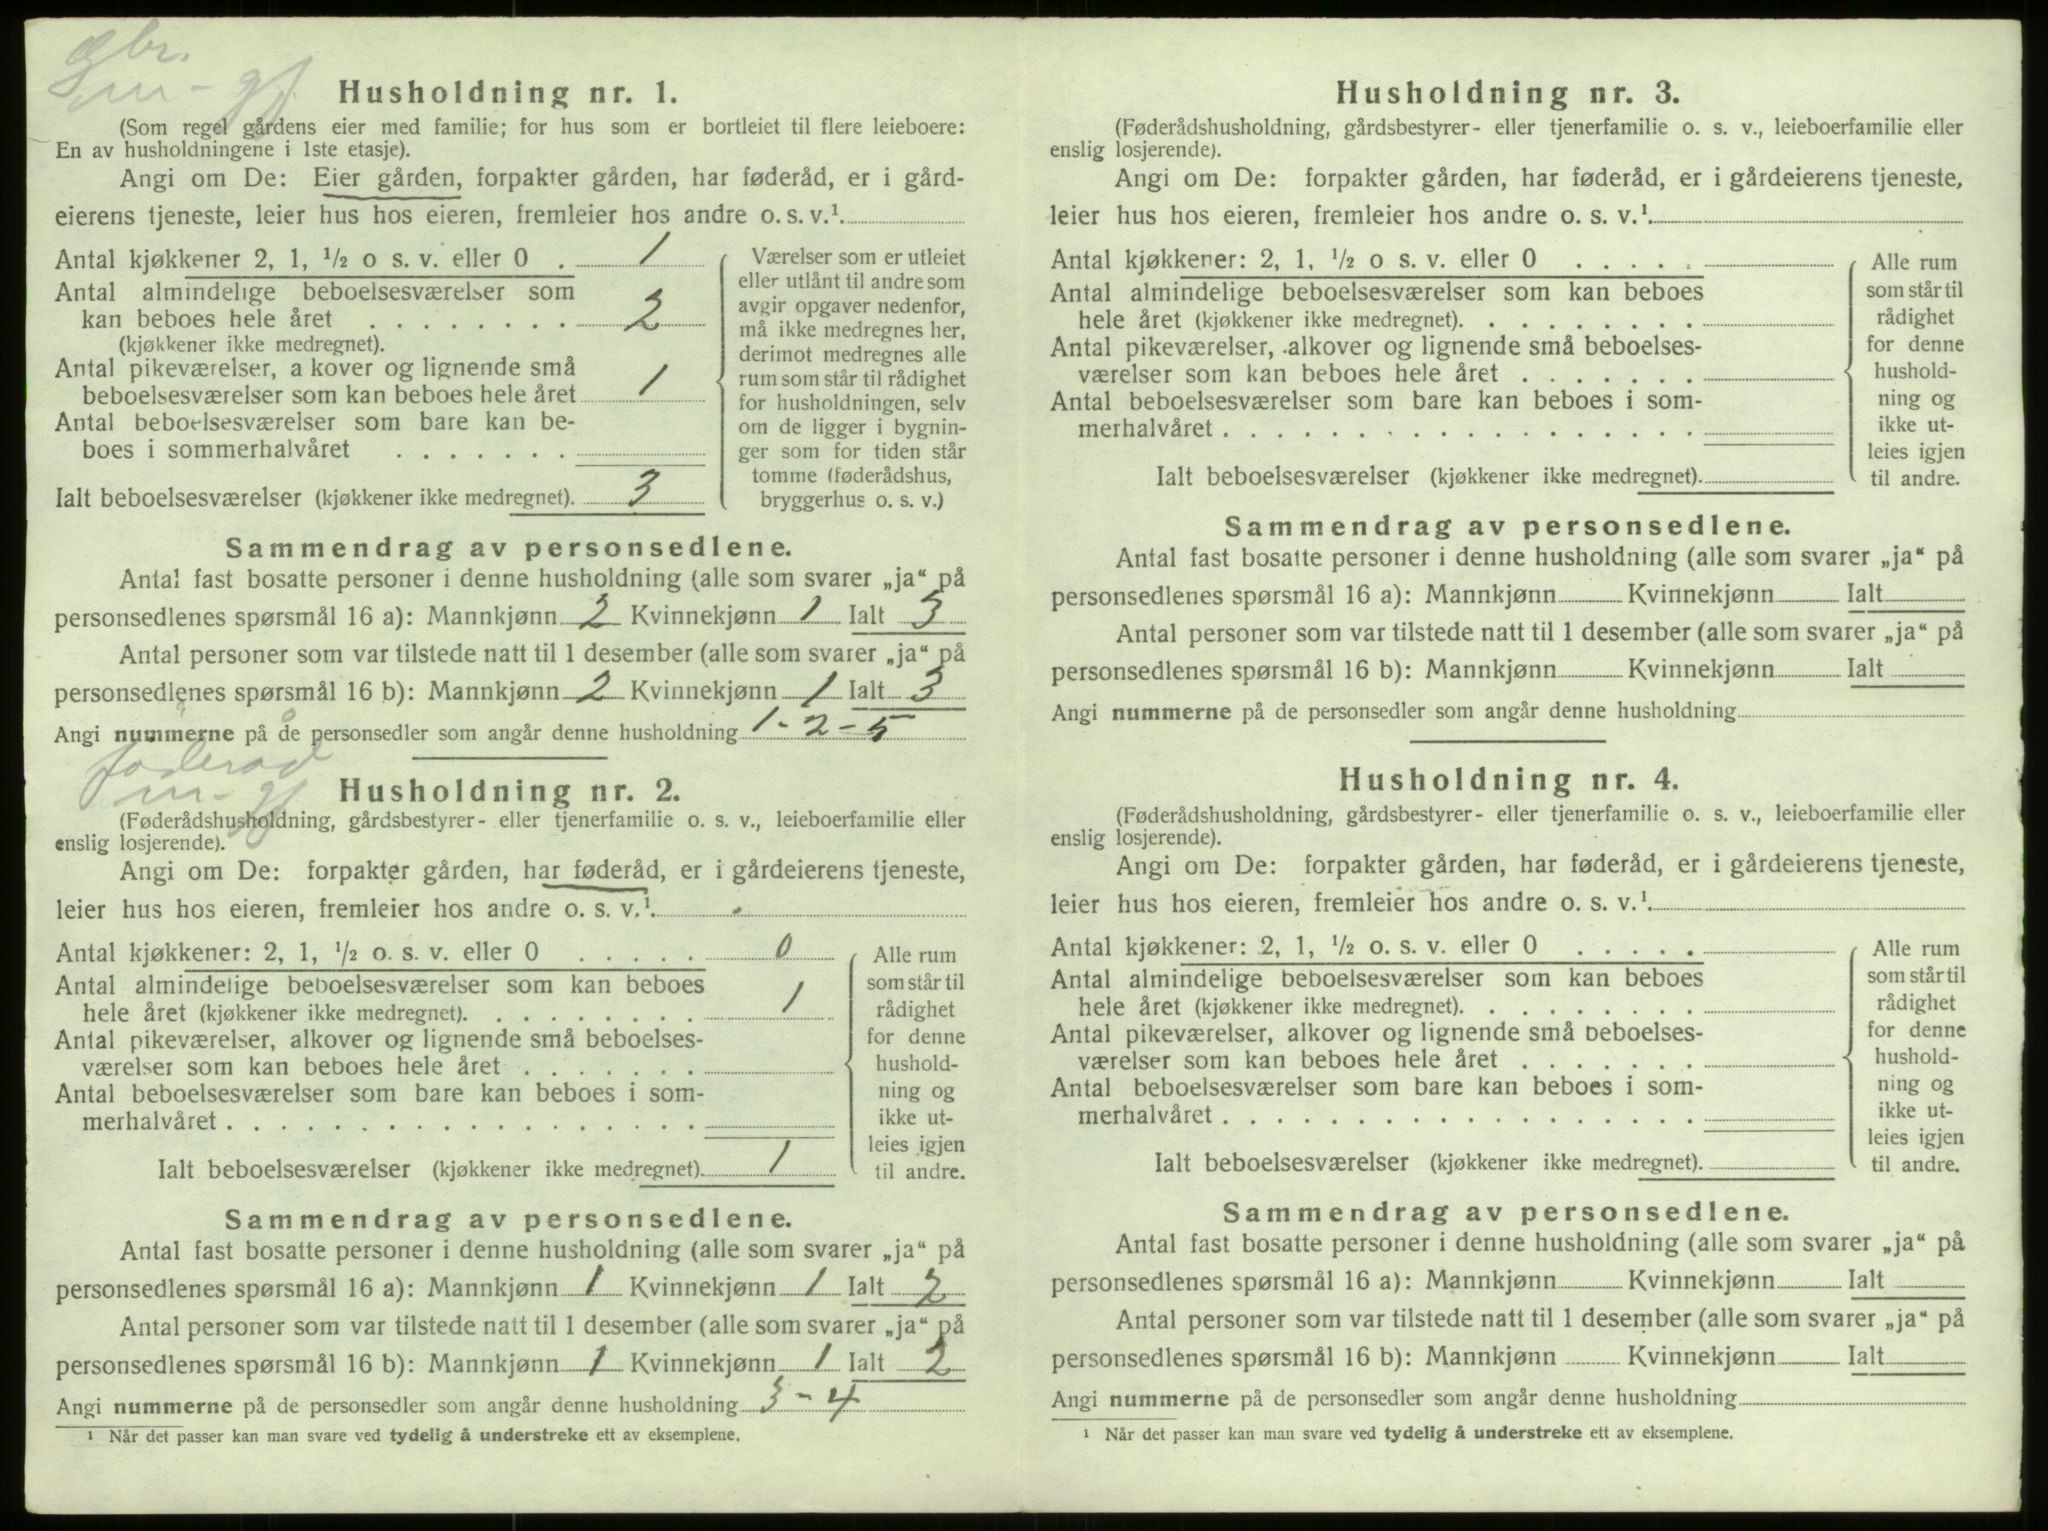 gbr.
m - gf
Husholdning nr. 1.
(Som regel gårdens eier med familie; for hus som er bortleiet til flere leieboere:
En av husholdningene i 1ste etasje).
Angi om De: Eier gården, forpakter gården, har føderåd, er i gård-
eierens tjeneste, leier hus hos eieren, fremleier hos andre o. s. v.¹.
Antal kjøkkener 2, 1, ½ o s. v. eller 0 . 1
Antal almindelige beboelsesværelser som
kan beboes hele året . . . . . . . . 2
(kjøkkener ikke medregnet).
Antal pikeværelser, a kover og lignende små
beboelsesværelser som kan beboes hele året 1
Antal beboelsesværelser som bare kan be-
boes i sommerhalvåret . . . . . . .
Ialt beboelsesværelser (kjøkkener ikke medregnet). 3
Værelser som er utleiet
eller utlånt til andre som
avgir opgaver nedenfor,
må ikke medregnes her,
derimot medregnes alle
rum som står til rådighet
for husholdningen, selv
om de ligger i bygnin-
ger som for tiden står
tomme (føderådshus,
bryggerhus o. s. v.)
Sammendrag av personsedlene.
Antal fast bosatte personer i denne husholdning (alle som svarer „ja“ på
personsedlenes spørsmål 16 a): Mannkjønn 2 Kvinnekjønn 1 Ialt 3
Antal personer som var tilstede natt til 1 desember (alle som svarer „ja“ på
personsedlenes spørsmål 16 b): Mannkjønn 2 Kvinnekjønn 1 Ialt 3
Angi nummerne på de personsedler som angår denne husholdning 1-2-5
føderåd
m - gf
Husholdning nr. 2.
(Føderådshusholdning, gårdsbestyrer- eller tjenerfamilie o. s. v., leieboerfamilie eller
enslig losjerende).
Angi om De: forpakter gården, har føderåd, er i gårdeierens tjeneste,
leier hus hos eieren, fremleier hos andre o. s. v.¹.
Antal kjøkkener: 2, 1, ½ o. s. v. eller 0 . . . . . 0
Antal almindelige beboelsesværelser som kan beboes
hele året (kjøkkener ikke medregnet). . . . . . . . . 1
Antal pikeværelser, alkover og lignende små beboelses-
værelser som kan beboes hele året . . . . . . .
Antal beboelsesværelser som bare kan beboes i som-
merhalvåret . . . . . . . . . . . . . . . . . .
Ialt beboelsesværelser (kjøkkener ikke medregnet). 1
Alle rum
som står til
rådighet
for denne
hushold-
ning og
ikke ut-
leies igjen
til andre.
Sammendrag av personsedlene.
Antal fast bosatte personer i denne husholdning (alle som svarer „ja“ på
personsedlenes spørsmål 16 a): Mannkjønn 1 Kvinnekjønn 1 Ialt 2
Antal personer som var tilstede natt til 1 desember (alle som svarer „ja“ på
personsedlenes spørsmål 16 b): Mannkjønn 1 Kvinnekjønn 1 Ialt 2
Angi nummerne på de personsedler som angår denne husholdning 3-4
¹ Når det passer kan man svare ved tydelig å understreke ett av eksemplene.
Husholdning nr. 3.
(Føderådshusholdning, gårdsbestyrer- eller tjenerfamilie o. s. v., leieboerfamilie eller
enslig losjerende).
Angi om De: forpakter gården, har føderåd, er i gårdeierens tjeneste,
leier hus hos eieren, fremleier hos andre o. s. v.¹.
Antal kjøkkener: 2, 1, ½ o s. v. eller 0 . . . . .
Antal almindelige beboelsesværelser som kan beboes
hele året (kjøkkener ikke medregnet). . . . . . . . .
Antal pikeværelser, alkover og lignende små beboelses-
værelser som kan beboes hele året . . . . . . .
Antal beboelsesværelser som bare kan beboes i som-
merhalvåret . . . . . . . . . . . . . . . . . .
Ialt beboelsesværelser (kjøkkener ikke medregnet).
Alle rum
som står til
rådighet
for denne
hushold-
ning og
ikke ut-
leies igjen
til andre.
Sammendrag av personsedlene.
Antal fast bosatte personer i denne husholdning (alle som svarer „ja“ på
personsedlenes spørsmål 16 a): Mannkjønn Kvinnekjønn Ialt
Antal personer som var tilstede natt til 1 desember (alle som svarer „ja“ på
personsedlenes spørsmål 16 b): Mannkjønn Kvinnekjønn Ialt
Angi nummerne på de personsedler som angår denne husholdning
Husholdning nr. 4.
(Føderådshusholdning, gårdsbestyrer- eller tjenerfamilie o. s. v., leieboerfamilie eller
enslig losjerende).
Angi om De: forpakter gården, har føderåd, er i gårdeierens tjeneste,
leier hus hos eieren, fremleier hos andre o. s. v.¹.
Antal kjøkkener: 2, 1, ½ o. s. v. eller 0 . . . . .
Antal almindelige beboelsesværelser som kan beboes
hele året (kjøkkener ikke medregnet). . . . . . . . .
Antal pikeværelser, alkover og lignende små beboelses-
værelser som kan beboes hele året . . . . . . .
Antal beboelsesværelser som bare kan beboes i som-
merhalvåret . . . . . . . . . . . . . . . . . .
Ialt beboelsesværelser (kjøkkener ikke medregnet).
Alle rum
som står til
rådighet
for denne
hushold-
ning og
ikke ut-
leies igjen
til andre.
Sammendrag av personsedlene.
Antal fast bosatte personer i denne husholdning (alle som svarer „ja“ på
personsedlenes spørsmål 16 a): Mannkjønn Kvinnekjønn Ialt
Antal personer som var tilstede natt til 1 desember (alle som svarer „ja“ på
personsedlenes spørsmål 16 b): Mannkjønn Kvinnekjønn Ialt
Angi nummerne på de personsedler som angår denne husholdning
¹ Når det passer kan man svare ved tydelig å understreke ett av eksemplene.